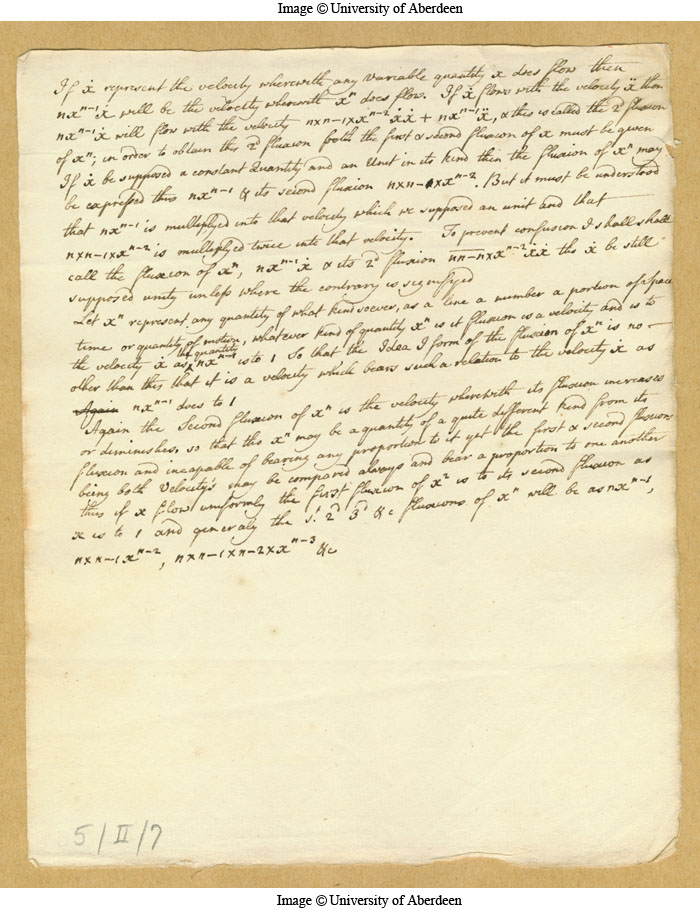 Image © University of Aberdeen
If ẋ represent the velocity wherewith any variable quantity x does flow then
nxⁿ⁻¹ẋ will be the velocity wherewith xⁿ does flow. If ẋ flows with the velocity ẍ then
nxⁿ⁻¹ẋ will flow with the velocity n×n-1×xⁿ⁻²ẋẋ + nxⁿ⁻¹ẍ, & this is called the 2d fluxion
of xⁿ; in order to obtain this 2d fluxion both the first & second fluxion of x must be given
If ẋ be supposed a constant Quantity and an Unit in its kind then the fluxion of xⁿ may
be expressed thus nxⁿ⁻¹ & its second fluxion n×n-1×xⁿ⁻². But it must be understood
that nxⁿ⁻¹ is multiplied into that velocity which we supposed an unit and that
n×n-1×xⁿ⁻² is multiplyed twice into that velocity. To prevent confusion I shall shall
call the fluxion of xⁿ, nxⁿ⁻¹ẋ & its 2d fluxion nn-n×xⁿ⁻²ẋẋ tho ẋ be still
supposed unity unless where the contrary is signifyed
Let xⁿ represent any quantity of what kind soever, as a line a number a portion of space
time or quantity of motion, whatever kind of quantity xⁿ is it fluxion is a velocity and is to
the velocity ẋ as the quantity nxⁿ⁻¹ is to 1 So that the Idea I form of the fluxion of xⁿ is no
other than this that it is a velocity which bears such a relation to the velocity ẋ as
Again nxⁿ⁻¹ does to 1
Again the Second fluxion of xⁿ is the velocity wherewith its fluxion increases
or diminishes. so that tho xⁿ may be a quantity of a quite different kind from its
fluxion and incapable of bearing any proportion to it yet the first & second fluxions
being both Velocity's may be compared always and bear a proportion to one another
thus if x flow uniformly the first fluxion of x² is to its second fluxion as
x is to 1 and generaly the 1st 2d 3d &c fluxions of xⁿ will be as nxⁿ⁻¹,
n×n-1xⁿ⁻², n×n-1×n-2×xⁿ⁻³ &c
5/II/7
Image © University of Aberdeen